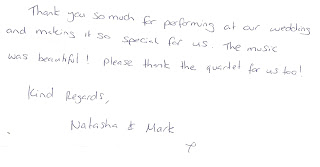 Thank you so much for performing at our wedding
and making it so special for us. The music
was beautiful! Please thank the quartet for us too!
Kind Regards,
Natasha & Mark
x